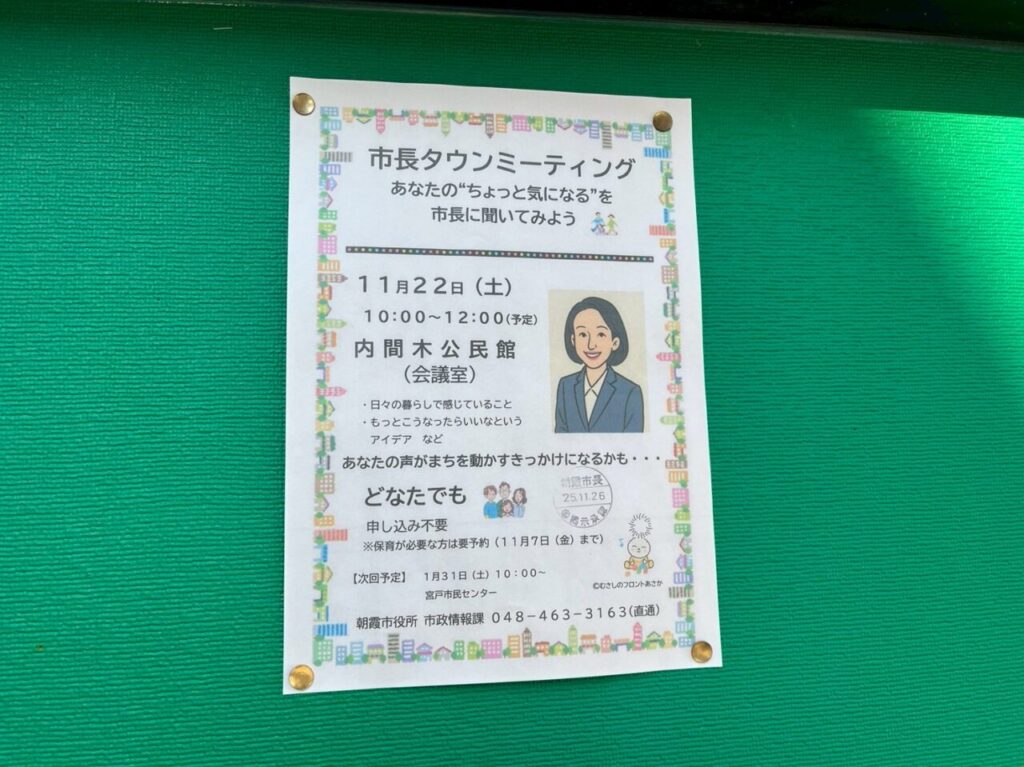 市長タウンミーティング
あなたの“ちょっと気になる”を
市長に聞いてみよう
11月22日（土）
10:00～12:00(予定)
内間木公民館
（会議室）
・日々の暮らしで感じていること
・もっとこうなったらいいなという
アイデア など
あなたの声がまちを動かすきっかけになるかも・・・
どなたでも
朝霞市長
25.11.26
申し込み不要
※保育が必要な方は要予約（11月7日（金）まで）
©むさしのフロントあさか
【次回予定】 1月31日（土）10：00～
宮戸市民センター
朝霞市役所 市政情報課 048－463－3163(直通)